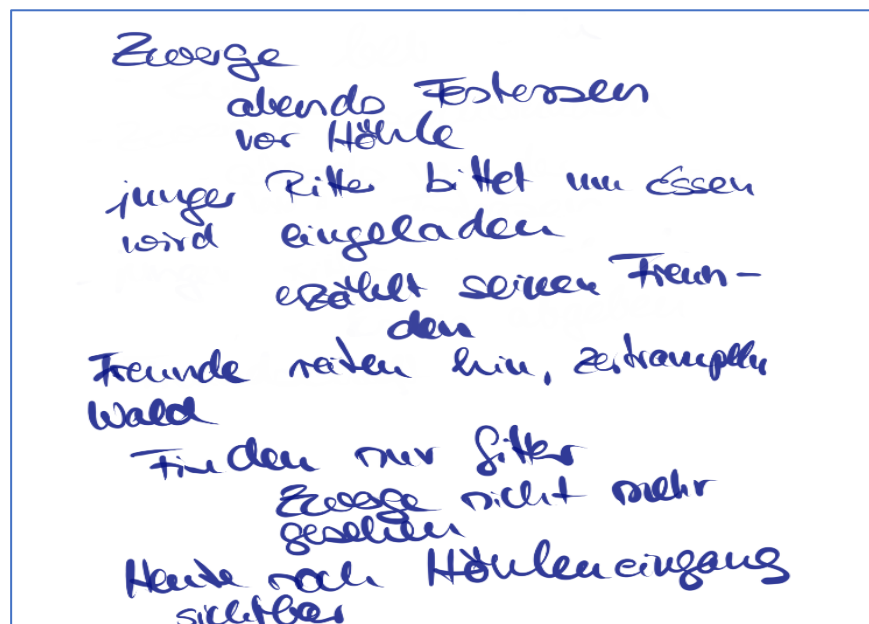 Zwerge
abends Festessen
vor Höhle
junger Ritter bittet um Essen
wird eingeladen
erzählt seinen Freun-
den
Freunde reiten hin, zertrampeln
Wald
Finden nur Gitter
Zwerge nicht mehr
gesehen
Heute noch Höhleneingang
sichtbar